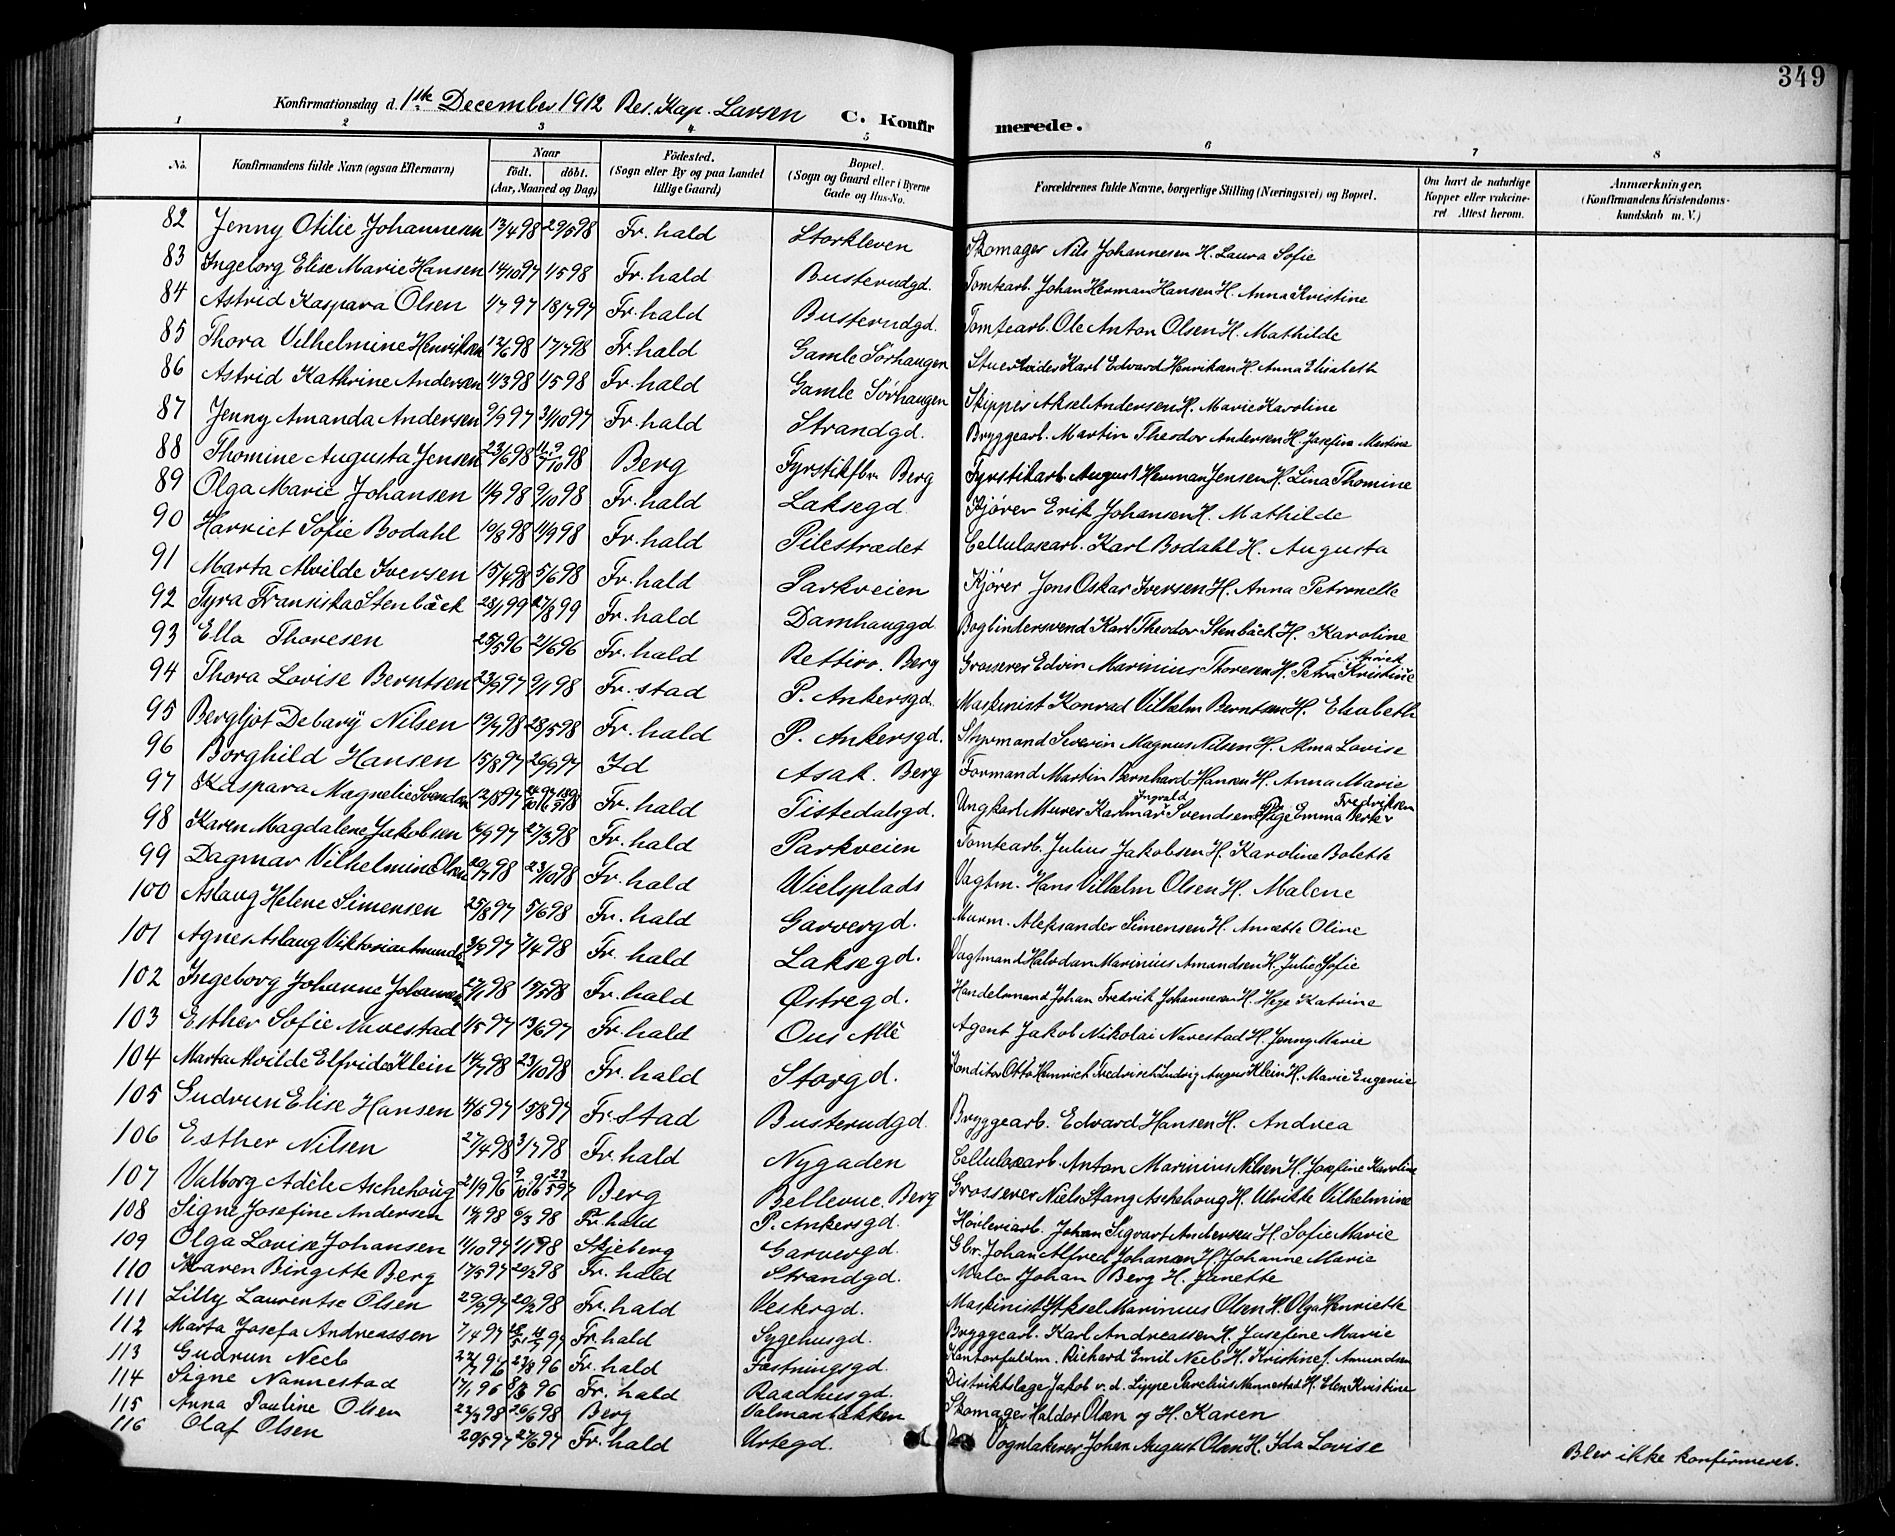 349
Konfirmationsdag d. 1ste December 1912 Res. Kap. Larsen
C. Konfirmerede.
1 2 3 4 5 6 7 8
No. | Konfirmandens fulde Navn (ogsaa Efternavn) | Naar födt. döbt. (Aar, Maaned og Dag) | Födested. (Sogn eller By og paa Landet tillige Gaard) | Bopæl. (Sogn og Gaard eller i Byerne Gade og Hus-No. | Forældrenes fulde Navne, borgerlige Stilling (Næringsvei) og Bopæl. | Om havt de naturlige Kopper eller vakcineret Attest herom. | Anmærkninger. (Konfirmandens Kristendomskundskab m. V.)
82 Jenny Otilie Johannesen 13/4 98 29/5 98 Fr.hald Storkleven Skomager Nils Johannesen H. Laura Sofie
83 Ingeborg Elise Marie Hansen 14/10 97 1/5 98 Fr.hald Busterudgd. Tomtearb. Johan Herman Hansen H. Anna Kristine
84 Astrid Kaspara Olsen 1/7 97 18/7 97 Fr.hald Busterudgd. Tomtearb. Ole Anton Olsen H. Mathilde
85 Thora Vilhelmine Henriksen 12/6 98 17/7 98 Fr.hald Gamle Sørhaugen Karl Edvard Henriksen H. Anna Elisabeth
86 Astrid Kathrine Andersen 11/3 98 1/5 98 Fr.hald Gamle Sørhaugen Skipper Aksel Andersen H. Marie Karoline
87 Jenny Amanda Andersen 9/9 97 31/10 97 Fr.hald Strandgd. Bryggearb. Martin Theodor Andersen H. Josefine Martine
88 Thomine Augusta Jensen 23/6 98 Berg Fyrstikfbr. Berg Fyrstikarb. August Herman Jensen H. Lina Thomine
89 Olga Marie Johansen 11/9 98 9/10 98 Fr.hald Laksegd. Kjører Erik Johansen H. Mathilde
90 Harriet Sofie Bodahl 10/8 98 11/9 98 Fr.hald Pilestrædet Cellulosearb. Karl Bodahl H. Augusta
91 Marta Alvilde Iversen 15/4 98 5/6 98 Fr.hald Parkveien Kjører Jons Oskar Iversen H. Anna Petronelle
92 Tyra Fransiska Stenbäck 28/1 99 27/8 99 Fr.hald Damhauggd Bogbindersvend Karl Theodor Stenbäck H. Karoline
93 Ella Thoresen 25/5 96 21/6 96 Fr.hald Rettiro. Berg Grosserer Edvin Marinius Thoresen H. Petra Kristine
94 Thora Lovise Berntsen 23/9 97 9/1 98 Fr.stad P. Ankersgd. Maskinist Konrad Vilhelm Berntsen H. Elisabeth
95 Bergljot Debary Nilsen 28/5 98 Fr.hald P. Ankersgd. Styrmand Severin Magnus Nilsen H. Alma Lovise
96 Borghild Hansen 15/8 97 26/9 97 Id Asak. Berg Formand Martin Bernhard Hansen H. Anna Marie
97 Kaspara Magnelie Svendsen 12/8 97 Fr.hald Tistedalsgd. Ungkarl Murer Karlmar Ingvald Svendsen Pige Emma Fredriksen
98 Karen Magdalene Jakobsen 16/9 97 27/3 98 Fr.hald Parkveien Tomtearb. Julius Jakobsen H. Karoline Bolette
99 Dagmar Vilhelmine Olsen 20/7 98 23/10 98 Fr.hald Wielsplads Vagtm. Hans Vilhelm Olsen H. Malene
100 Aslaug Helene Simensen 25/8 97 5/6 98 Fr.hald Garvergd. Murm. Aleksander Simensen H. Annette Oline
101 Agnes Aslaug Viktoria Amundsen 7/4 98 Fr.hald Laksegd. Vagtmand Halvdan Marinius Amundsen H. Julie Sofie
102 Ingeborg Johanne Johannesen 27/1 98 Fr.hald Østregd. Handelsmand Johan Fredrik Johannesen H. Hege Katrine
103 Esther Sofie Navestad 1/5 97 13/6 97 Fr.hald Ous Alle Agent Jakob Nikolai Navestad H. Jenny Marie
104 Marta Alvilde Elfride Klein 14/7 98 23/10 98 Fr.hald Storgd. Konditor Otto Heinrich Fredrisch Ludvig August Klein H. Marie Eugenie
105 Gudrun Elise Hansen 4/6 97 15/8 97 Fr.stad Busterudgd. Bryggearb. Edvard Hansen H. Andrea
106 Esther Nilsen 27/4 98 3/7 98 Fr.hald Nygaden Cellulosearb. Anton Marinius Nilsen H. Josefine Karoline
107 Valborg Adèle Aschehoug 21/9 96 Berg Bellevue. Berg Grosserer Niels Stang Aschehoug H. Ulrikke Vilhelmine
108 Signe Josefine Andersen 6/3 98 Fr.hald P. Ankersgd. Høvleriarb. Johan Sigvart Andersen H. Sofie Marie
109 Olga Lovise Johansen 11/10 97 1/1 98 Skjeberg Garvergd. Gbr. Johan Alfred Johansen H. Johanne Marie
110 Maren Birgitte Berg 17/5 97 20/2 98 Fr.hald Strandgd. Maler Johan Berg H. Janette
111 Lilly Laurentse Olsen 20/2 98 Fr.hald Vestergd. Maskinist Aksel Marinius Olsen H. Olga Henriette
112 Marta Josefa Andreassen 7/4 97 Fr.hald Sygehusgd. Bryggearb. Karl Andreassen H. Josefine Marie
113 Gudrun Neeb 96 Fr.hald Fæstningsgd. Kontorfuldm. Richard Emil Neeb H. Kristine f. Amundsen
114 Signe Nannestad 17/1 96 8/3 96 Fr.hald Raadhusgd. Distriktslæge Jakob v. d. Lippe Parelius Nannestad H. Elen Kristine
115 Anna Pauline Olsen 22/3 98 26/6 98 Berg Valmanbakken Skomager Haldor Olsen og H. Karen
116 Olaf Olsen 20/5 97 27/6 97 Fr.hald Urtegd. Vognlakerer Johan August Olsen H. Ida Lovise Blev ikke konfirmeret.